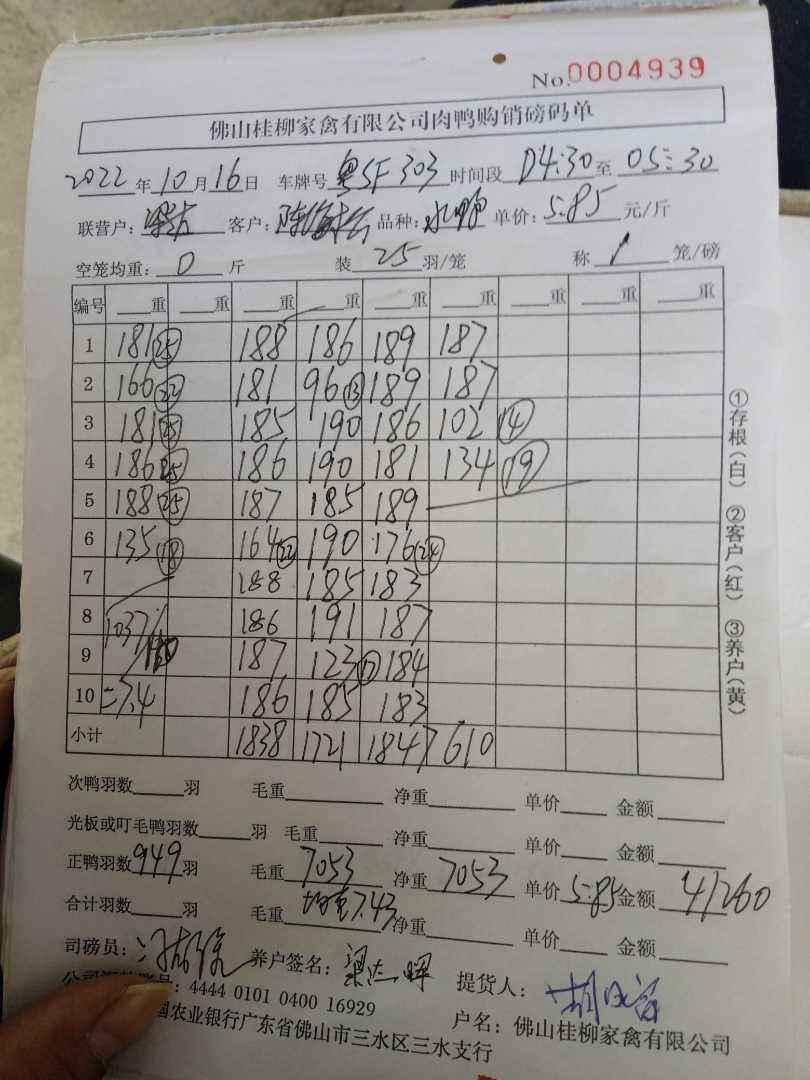 No.0004939
佛山桂柳家禽有限公司肉鸭购销磅码单
2022年10月16日 车牌号 粤SF303 时间段 04:30 至 05:30
联营户: 客户: 品种: 单价: 5.85 元/斤
空笼均重: 0 斤 装 25 羽/笼 称 1 笼/磅
编号 重 重 重 重 重 重 重 重 重
1 181 25 188 186 189 187
2 166 22 181 96 13 189 187
3 181 25 185 190 186 102 14
4 186 25 186 190 181 134 19
5 188 25 187 185 189
6 135 18 164 22 190 176 24
7 188 185 183
8 1037 186 191 187
9 187 123 17 184
10 =7.4 186 185 183
小计 1838 1721 1847 610
次鸭羽数 羽 毛重 净重 单价 金额
光板或叮毛鸭羽数 羽 毛重 净重 单价 金额
正鸭羽数 949 羽 毛重 7053 净重 7053 单价 5.85 金额 41260
合计羽数 羽 毛重 均重7.43 净重 单价 金额
司磅员: 养户签名: 提货人:
号: 4444 0101 0400 16929 户名: 佛山桂柳家禽有限公司
国农业银行广东省佛山市三水区三水支行
①存根(白) ②客户(红) ③养户(黄)